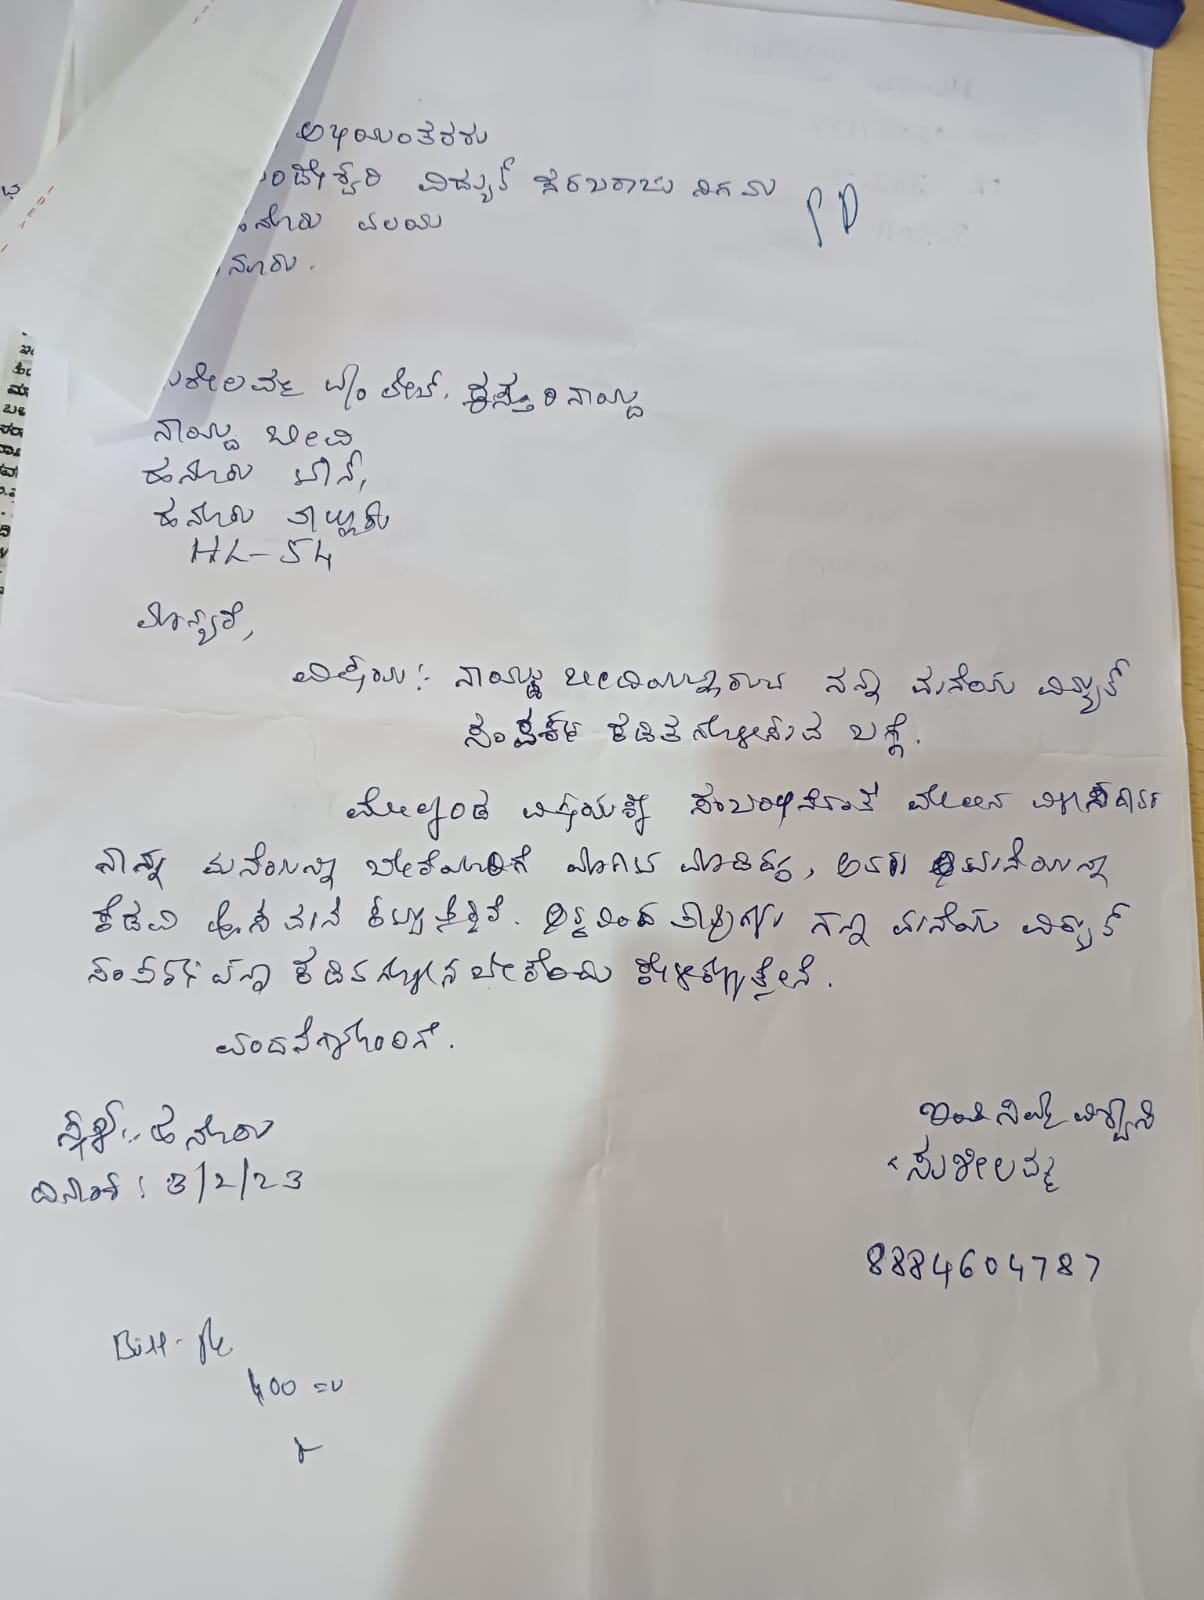 ಅಭಿಯಂತರರು
ಂಡೇಶ್ವರಿ ವಿದ್ಯುತ್ ಸರಬರಾಜು ನಿಗಮ
ಹನೂರು ವಲಯ
ನೂರು.
PD
ಶೀಲಮ್ಮ ಲೇಟ್. ಕಸ್ತೂರಿ ನಾಯ್ಡು
ನಾಯ್ಡು ಬೀದಿ
ಹನೂರು ಟೌನ್,
ಹನೂರು ತಾಲ್ಲೂಕು
HL-54
ಮಾನ್ಯರೆ,
ವಿಷಯ:- ನಾಯ್ಡು ಬೀದಿಯಲ್ಲಿರುವ ನನ್ನ ಮನೆಯ ವಿದ್ಯುತ್
ಸಂಪರ್ಕ ಕಡಿತಗೊಳಿಸುವ ಬಗ್ಗೆ.
ಮೇಲ್ಕಂಡ ವಿಷಯಕ್ಕೆ ಸಂಬಂಧಿಸಿದಂತೆ ಮೇಲಿನ ವಿಳಾಸದಾರ
ನಾನ್ನು ಮನೆಯನ್ನು ಬೇರೆಯವರಿಗೆ ಮಾರಾಟ ಮಾಡಿದ್ದು, ಅವರು ಮನೆಯನ್ನು
ಕೆಡವಿ ಹೊಸ ಮನೆ ಕಟ್ಟುತ್ತಿದ್ದಾರೆ. ಆದ್ದರಿಂದ ತಾವುಗಳು ನನ್ನ ಮನೆಯ ವಿದ್ಯುತ್
ಸಂಪರ್ಕವನ್ನು ಕಡಿತಗೊಳಿಸಬೇಕೆಂದು ಕೇಳಿಕೊಳ್ಳುತ್ತೇನೆ.
ವಂದನೆಗಳೊಂದಿಗೆ.
ಸ್ಥಳ:- ಹನೂರು
ದಿನಾಂಕ: 3/2/23
ಇಂತಿ ನಿಮ್ಮ ವಿಶ್ವಾಸಿ
ಸುಶೀಲಮ್ಮ
8884604787
Bill
400 =